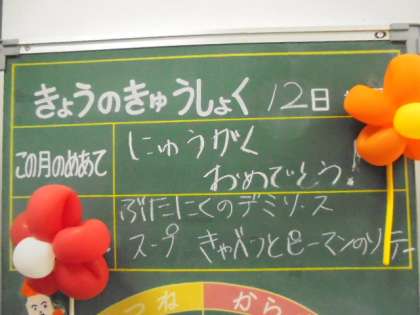 きょうのきゅうしょく 12日
この月のめあて
にゅうがく
おめでとう!
ぶたにくのデミソース
スープ きゃべつとピーマンのソテー
つね
から